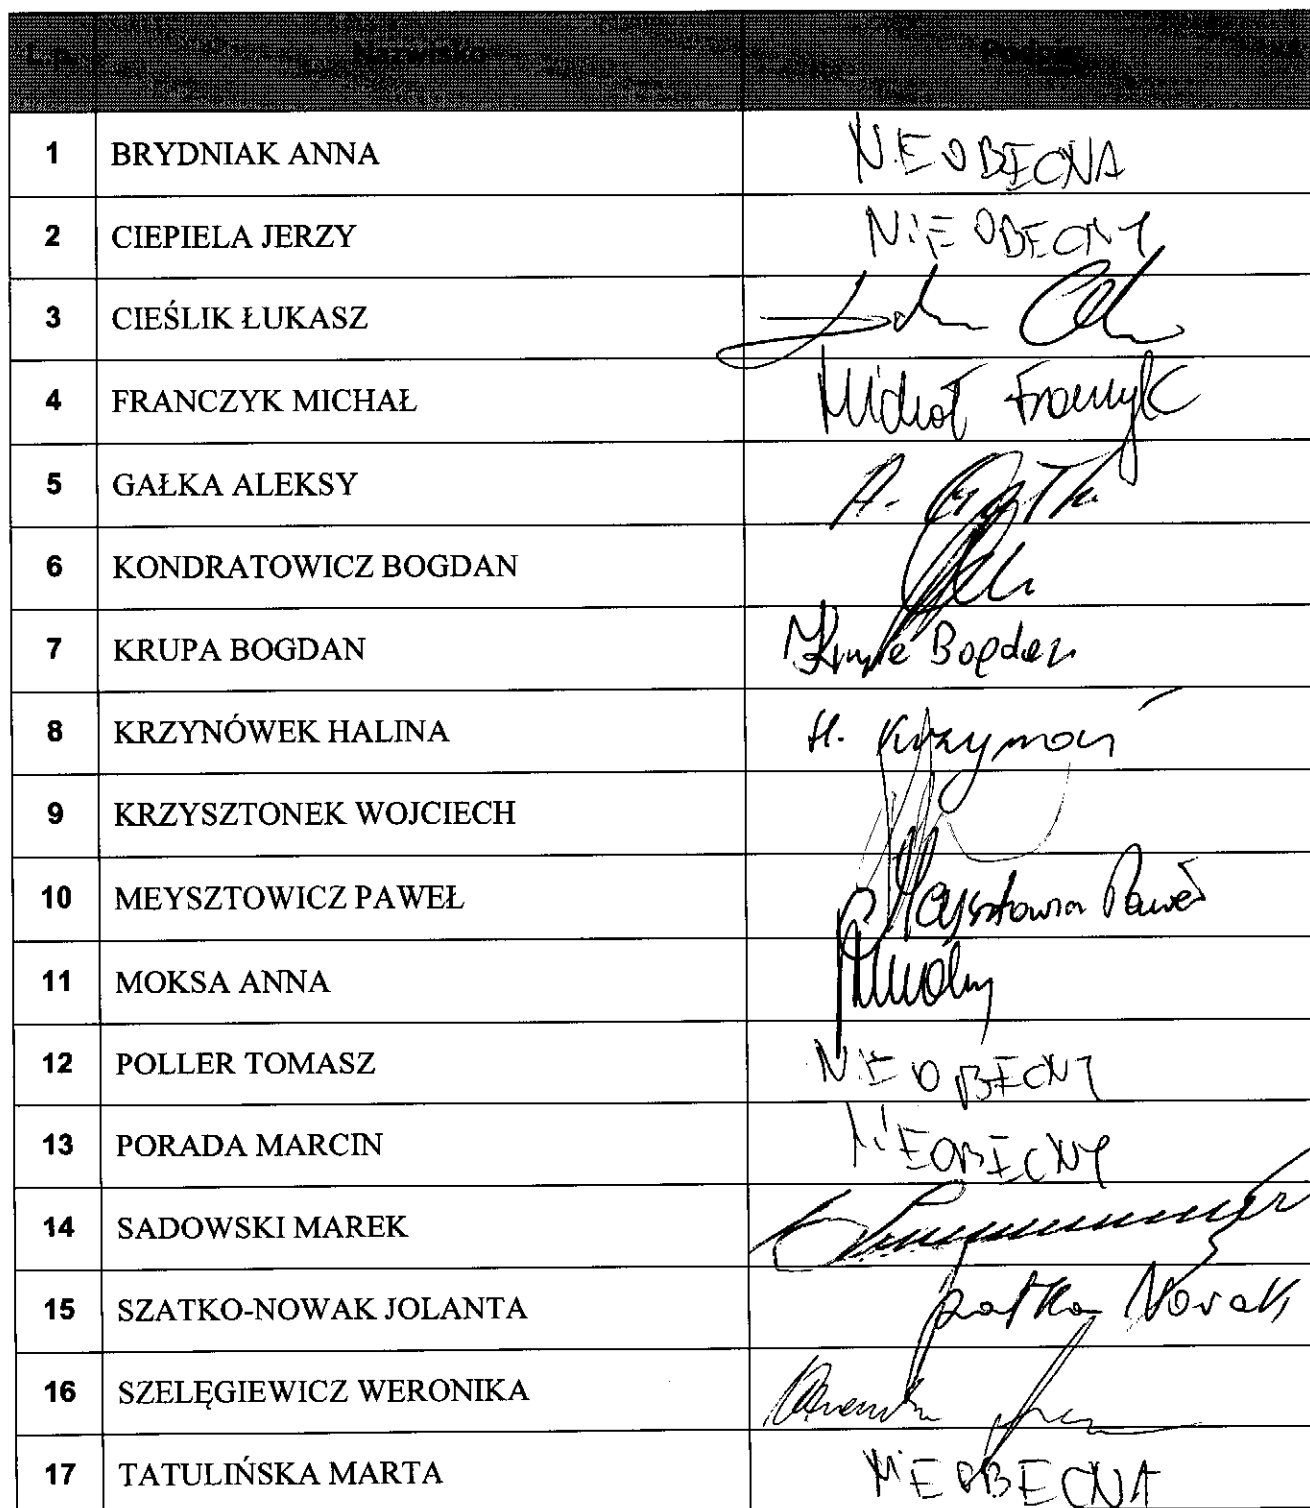 L.p. Nazwisko Podpis
1 BRYDNIAK ANNA NIEOBECNA
2 CIEPIELA JERZY NIEOBECNY
3 CIEŚLIK ŁUKASZ
4 FRANCZYK MICHAŁ Michał Franczyk
5 GAŁKA ALEKSY A. Gałka
6 KONDRATOWICZ BOGDAN
7 KRUPA BOGDAN Krupa Bogdan
8 KRZYNÓWEK HALINA H. Krzynów
9 KRZYSZTONEK WOJCIECH
10 MEYSZTOWICZ PAWEŁ Meysztowicz Paweł
11 MOKSA ANNA
12 POLLER TOMASZ NIEOBECNY
13 PORADA MARCIN NIEOBECNY
14 SADOWSKI MAREK
15 SZATKO-NOWAK JOLANTA Szatko Nowak
16 SZELĘGIEWICZ WERONIKA
17 TATULIŃSKA MARTA NIEOBECNA